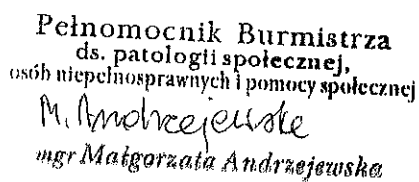 Pełnomocnik Burmistrza
ds. patologii społecznej,
osób niepełnosprawnych i pomocy społecznej
M. Andrzejewska
mgr Małgorzata Andrzejewska